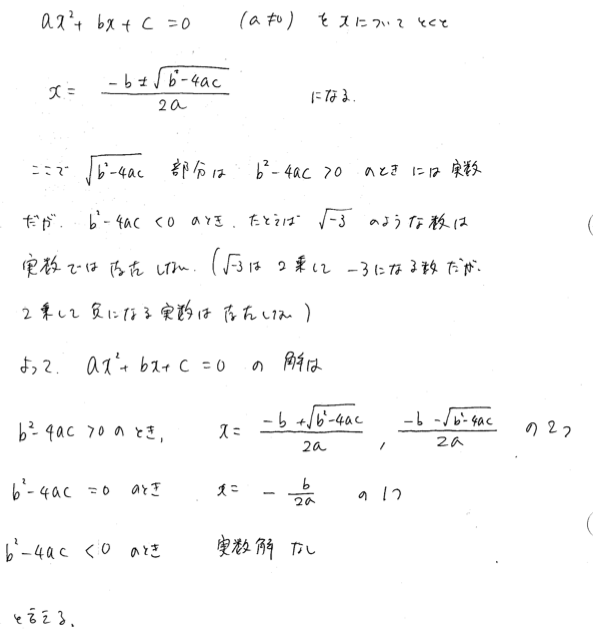 ax²+ bx + c = 0 (a≠0) を x について とくと
x = (-b ± √(b²-4ac)) / 2a になる.
ここで √(b²-4ac) 部分は b²-4ac >0 のときには 実数
だが. b²-4ac <0 のとき. たとえば √-3 のような数は
実数では 存在しない. (√-3 は 2乗して -3になる数だが.
2乗して 負になる実数は 存在しない)
よって. ax²+ bx + c = 0 の 解は
b²-4ac >0 のとき, x = (-b +√(b²-4ac)) / 2a , (-b -√(b²-4ac)) / 2a の 2つ
b²-4ac = 0 のとき x = - b/2a の 1つ
b²-4ac < 0 のとき 実数解 なし
と言える.